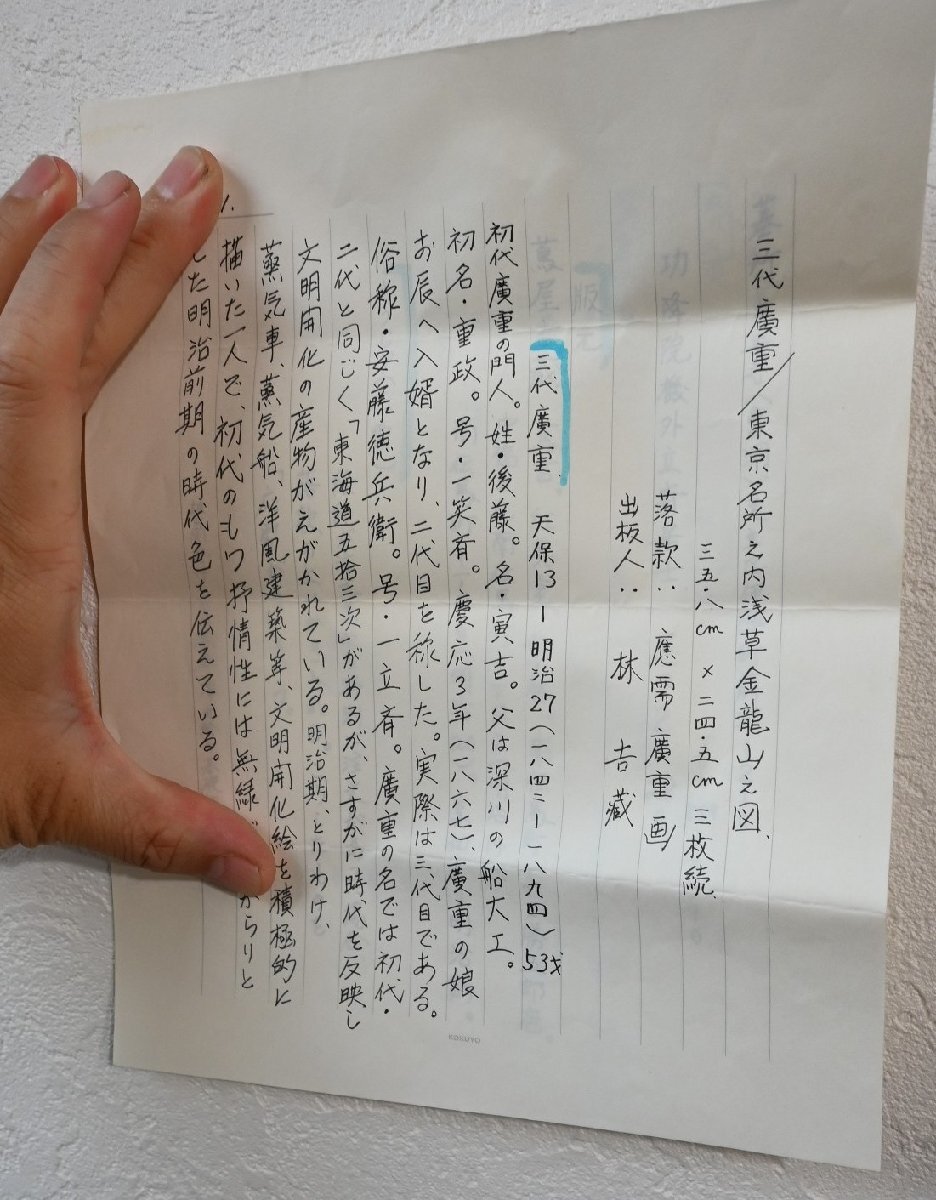 三代廣重/東京名所之内浅草金龍山之図、
三五・八cm×二四・五cm 三枚続、
落款:應需 廣重画
出板人:林 吉藏
三代廣重 天保13ー明治27(一八四二ー一八九四)53才
初代廣重の門人。姓・後藤。名・寅吉。父は深川の船大工。
初名・重政。号・一笑斉。慶応3年(一八六七)、廣重の娘
お辰へ入婿となり、二代目を称した。実際は三代目である。
俗称・安藤徳兵衛。号・一立斉。廣重の名では初代・
二代と同じく「東海道五拾三次」があるが、さすがに時代を反映し
文明開化の産物がえがかれている。明治期、とりわけ、
蒸気車、蒸気船、洋風建築等、文明開化絵を積極的に
描いた一人で、初代のもつ抒情性には無縁 からりと
した明治前期の時代色を伝えている。
1.
KOKUYO